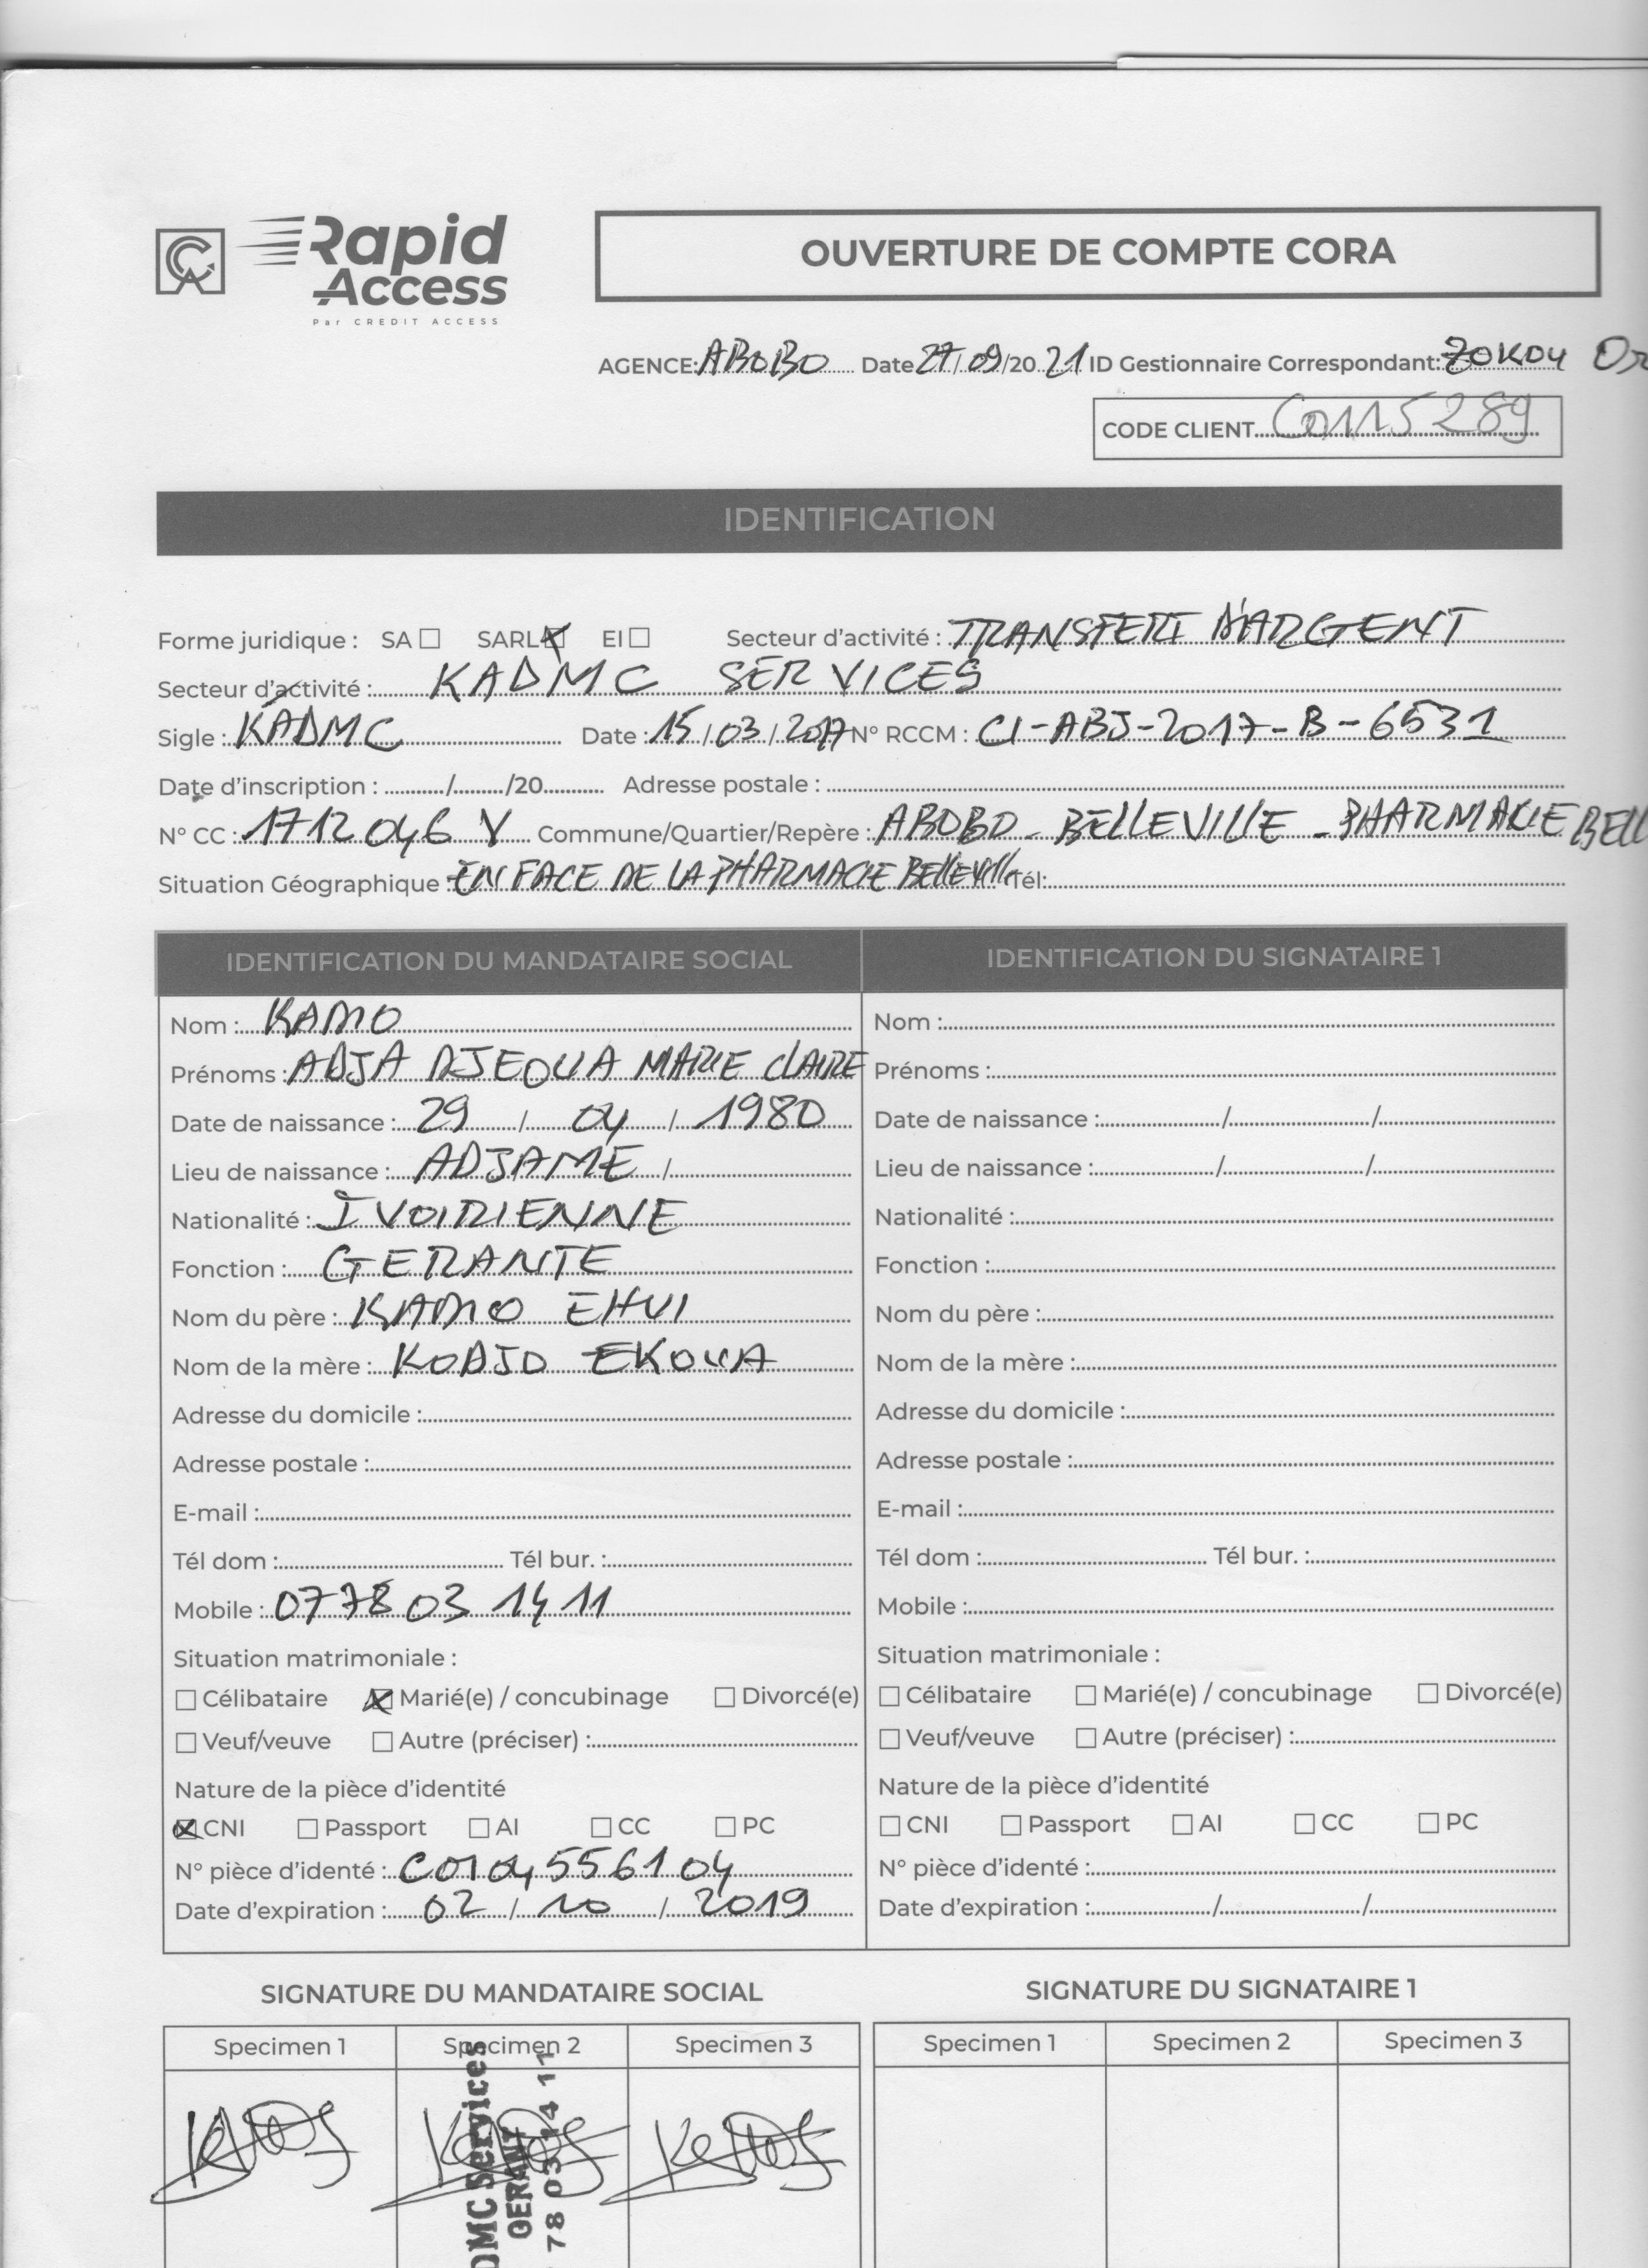 CA Rapid Access
Par CREDIT ACCESS
OUVERTURE DE COMPTE CORA
AGENCE: ABOBO Date 27/09/2021 ID Gestionnaire Correspondant:
CODE CLIENT C0115289
IDENTIFICATION
Forme juridique : SA ☐ SARL ☒ EI ☐ Secteur d'activité : TRANSFERT D'ARGENT
Secteur d'activité : KADMC SERVICES
Sigle : KADMC Date : 15/03/2017 N° RCCM : CI-ABJ-2017-B-6531
Date d'inscription : ........../........./20........... Adresse postale :
N° CC : 1712046 Y Commune/Quartier/Repère : ABOBO - BELLEVILLE - PHARMACIE BELL
Situation Géographique : EN FACE DE LA PHARMACIE BELLEVille Tél:
IDENTIFICATION DU MANDATAIRE SOCIAL
Nom : KAMO
Prénoms : ADJA DJEOUA MARIE CLAIRE
Date de naissance : 29 / 04 / 1980
Lieu de naissance : ADJAME /
Nationalité : IVOIRIENNE
Fonction : GERANTE
Nom du père : KAMO EHUI
Nom de la mère : KODJO EKOUA
Adresse du domicile :
Adresse postale :
E-mail :
Tél dom : Tél bur. :
Mobile : 0778 03 14 11
Situation matrimoniale :
☐ Célibataire ☒ Marié(e) / concubinage ☐ Divorcé(e)
☐ Veuf/veuve ☐ Autre (préciser) :
Nature de la pièce d'identité
☒ CNI ☐ Passport ☐ AI ☐ CC ☐ PC
N° pièce d'identé : C0104556104
Date d'expiration : 02 / 10 / 2019
IDENTIFICATION DU SIGNATAIRE 1
Nom :
Prénoms :
Date de naissance : / /
Lieu de naissance : / /
Nationalité :
Fonction :
Nom du père :
Nom de la mère :
Adresse du domicile :
Adresse postale :
E-mail :
Tél dom : Tél bur. :
Mobile :
Situation matrimoniale :
☐ Célibataire ☐ Marié(e) / concubinage ☐ Divorcé(e)
☐ Veuf/veuve ☐ Autre (préciser) :
Nature de la pièce d'identité
☐ CNI ☐ Passport ☐ AI ☐ CC ☐ PC
N° pièce d'identé :
Date d'expiration : / /
SIGNATURE DU MANDATAIRE SOCIAL
Specimen 1 Specimen 2 Specimen 3
DMC Services
GERANT
78 03 14 11
SIGNATURE DU SIGNATAIRE 1
Specimen 1 Specimen 2 Specimen 3